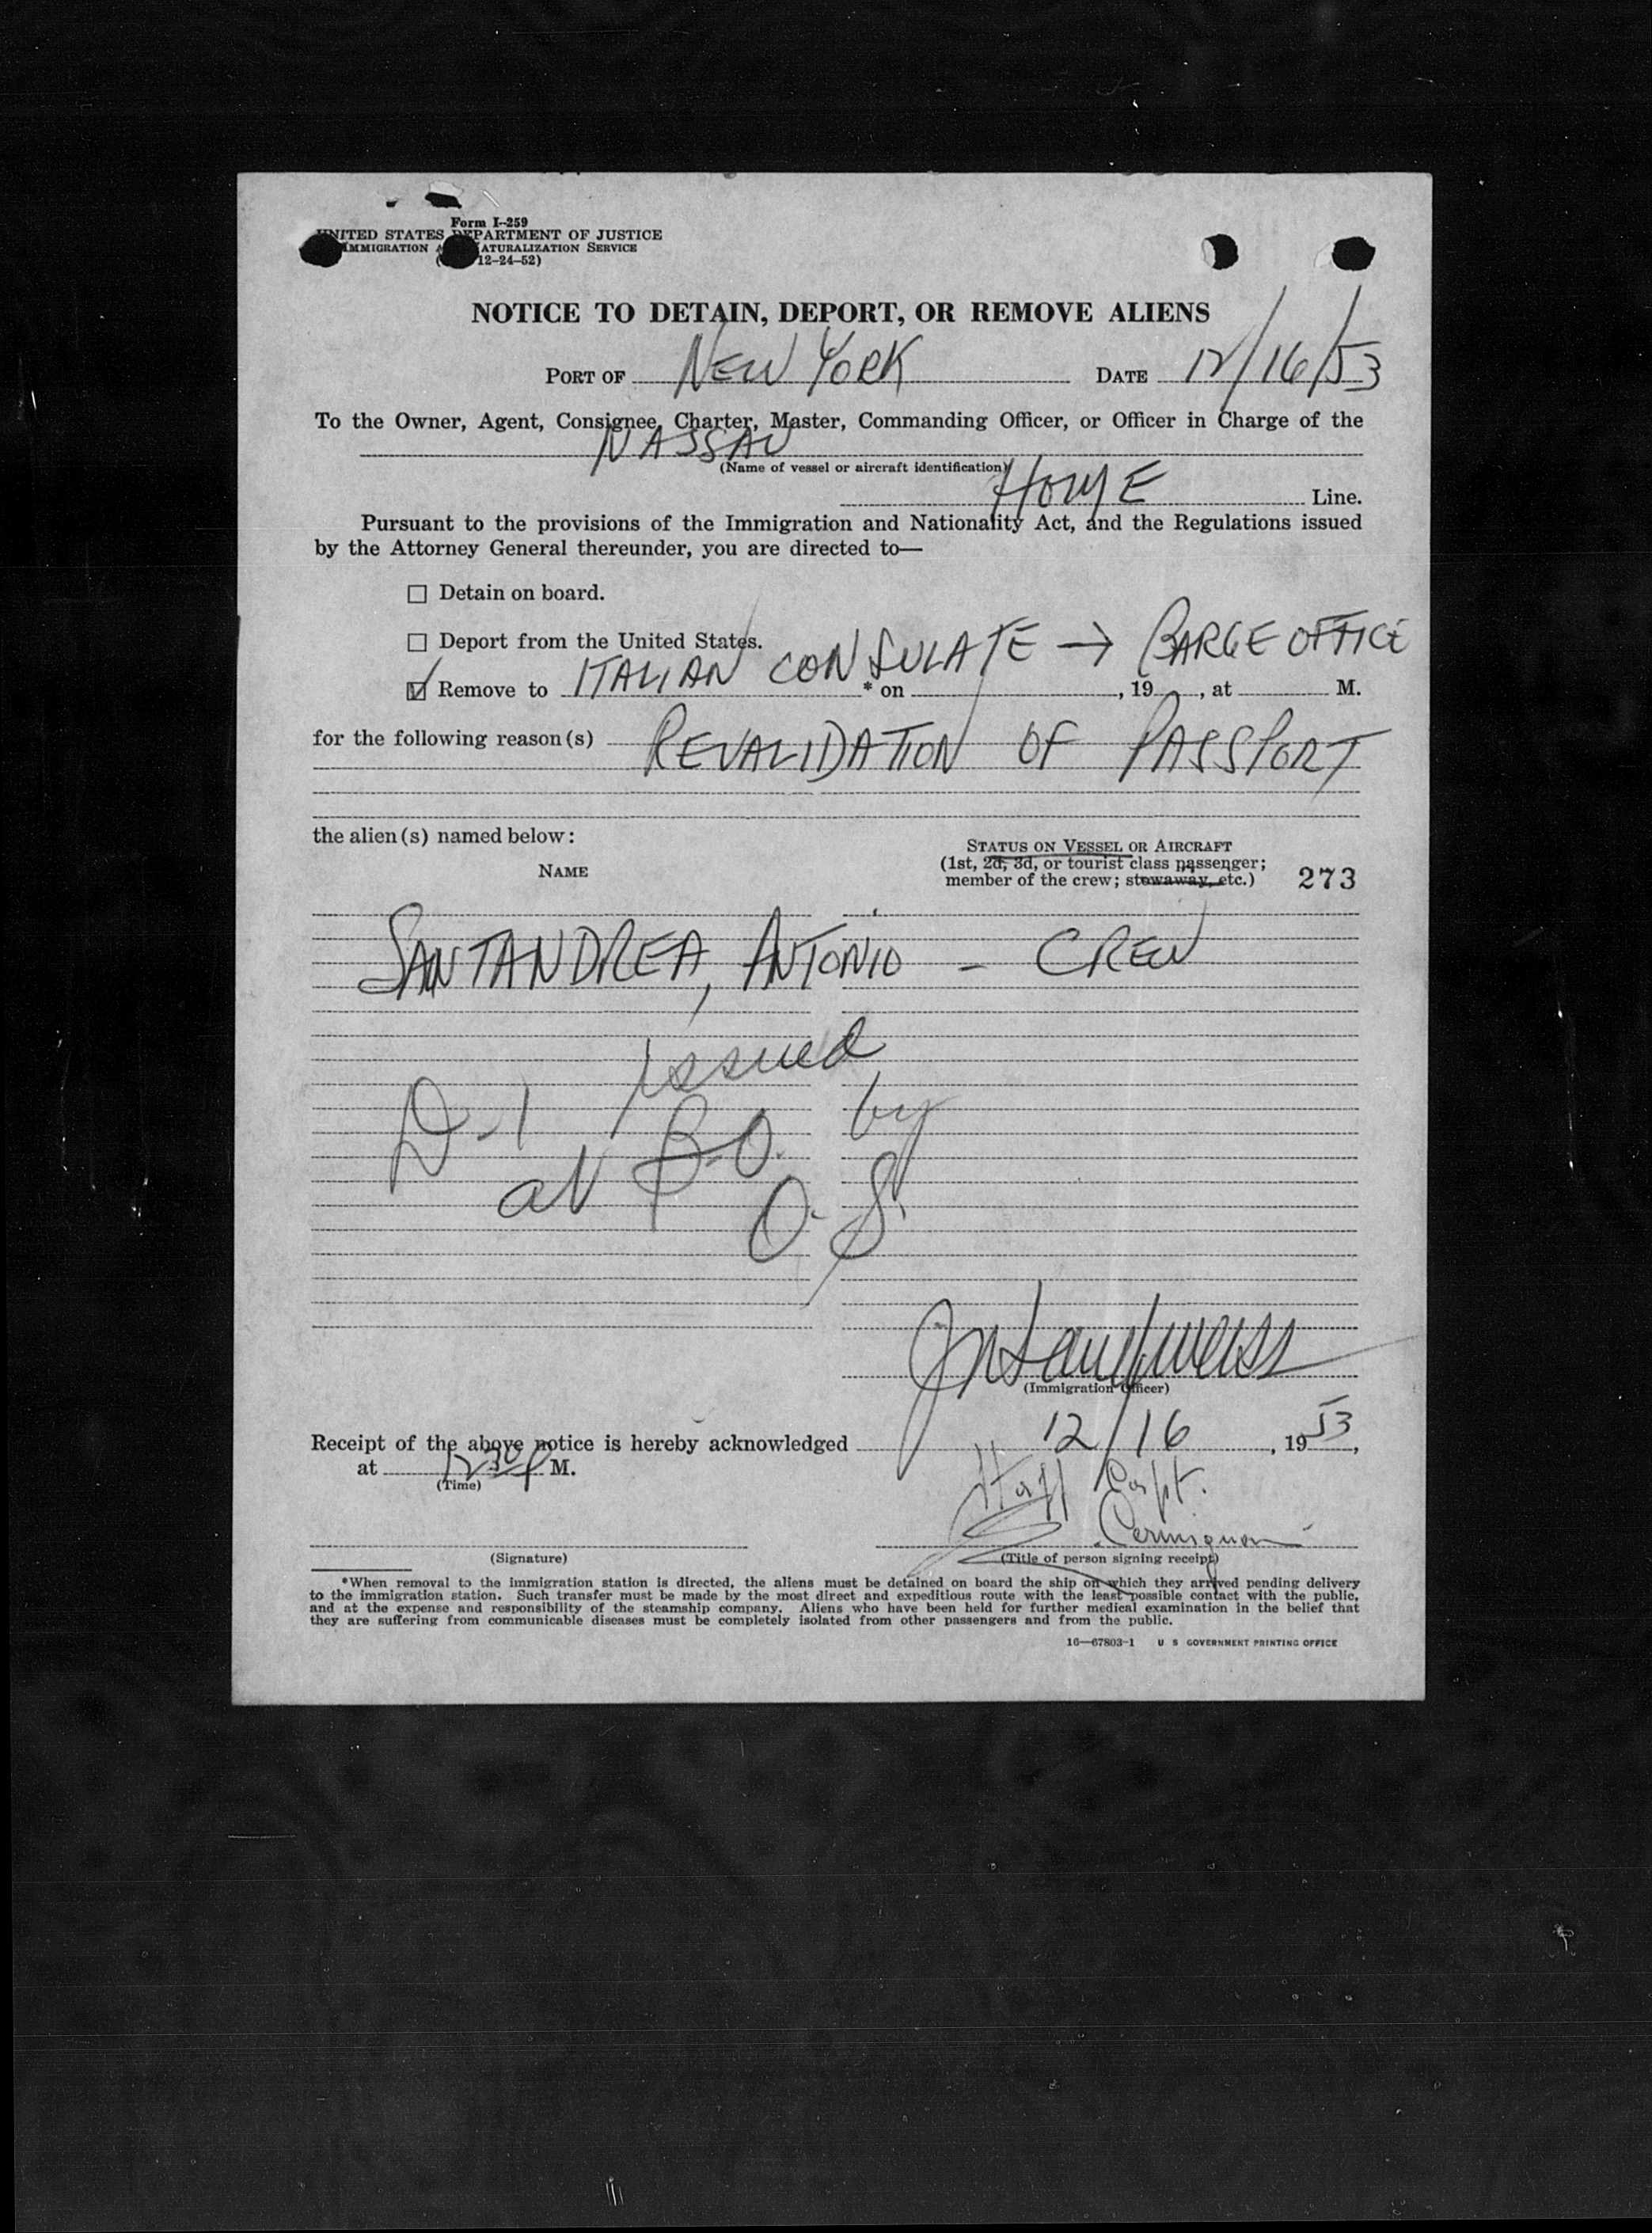 Form I-259
UNITED STATES DEPARTMENT OF JUSTICE
IMMIGRATION NATURALIZATION SERVICE
( 12-24-52)
NOTICE TO DETAIN, DEPORT, OR REMOVE ALIENS
PORT OF NEW YORK DATE 12/16/53
To the Owner, Agent, Consignee, Charter, Master, Commanding Officer, or Officer in Charge of the
NASSAU
(Name of vessel or aircraft identification)
HOME Line.
Pursuant to the provisions of the Immigration and Nationality Act, and the Regulations issued
by the Attorney General thereunder, you are directed to—
☐ Detain on board.
☐ Deport from the United States.
☑ Remove to ITALIAN CONSULATE → BARGE OFFICE * on , 19 , at M.
for the following reason(s) REVALIDATION OF PASSPORT
the alien(s) named below:
NAME
STATUS ON VESSEL OR AIRCRAFT
(1st, 2d, 3d, or tourist class passenger;
member of the crew; stowaway, etc.) 273
SANTANDREA, ANTONIO - CREW
D-1 issued
at B.O. by
O.S.
(Immigration Officer)
Receipt of the above notice is hereby acknowledged 12/16, 1953,
at 1230 P M.
(Time)
Staff Capt.
(Signature)
(Title of person signing receipt)
*When removal to the immigration station is directed, the aliens must be detained on board the ship on which they arrived pending delivery
to the immigration station. Such transfer must be made by the most direct and expeditious route with the least possible contact with the public,
and at the expense and responsibility of the steamship company. Aliens who have been held for further medical examination in the belief that
they are suffering from communicable diseases must be completely isolated from other passengers and from the public.
16—67803-1 U S GOVERNMENT PRINTING OFFICE